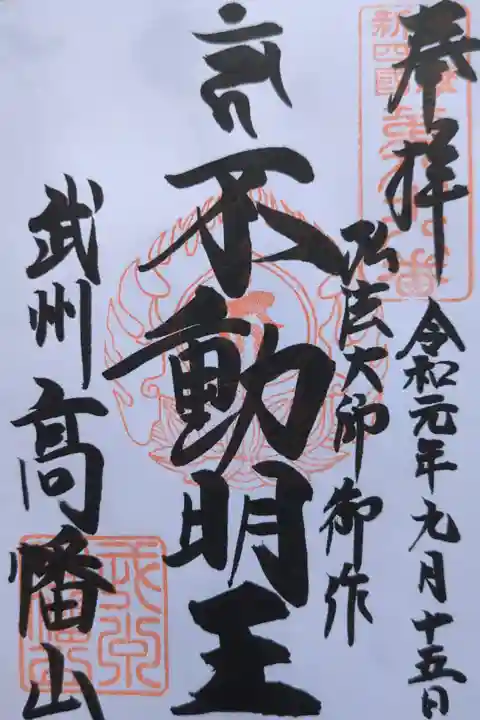 奉拝
令和元年九月十五日
弘法大師御作
不動明王
武州高幡山
新四國